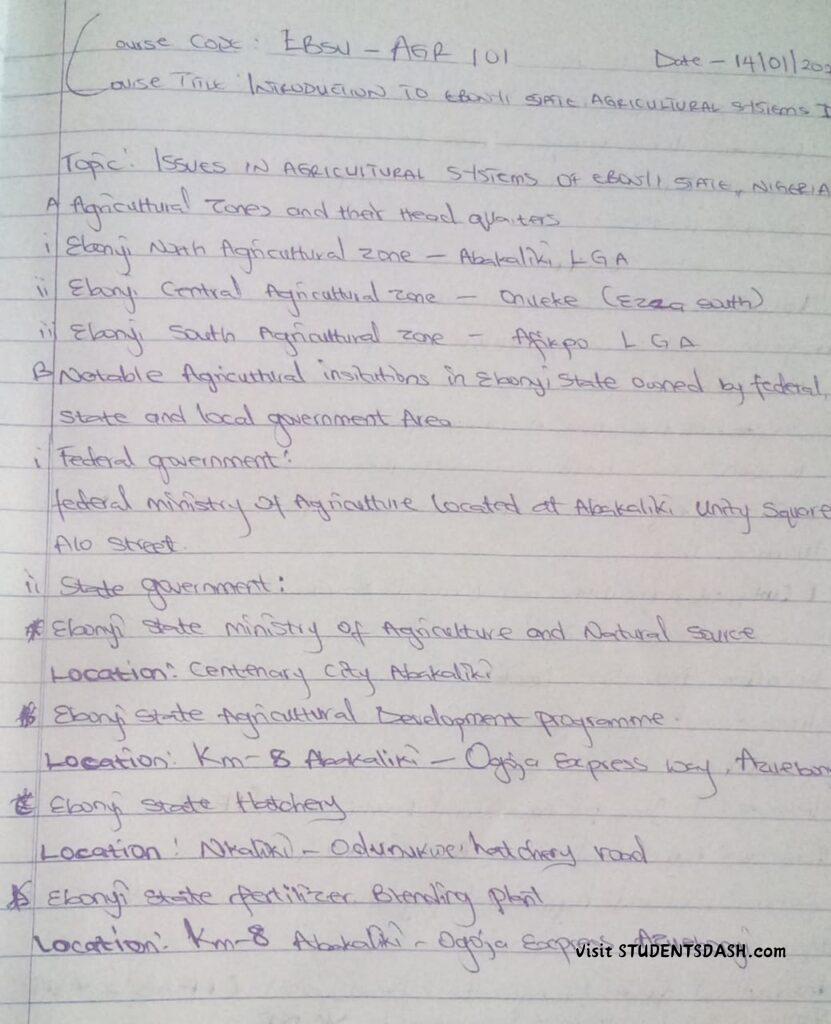 Course Code: EBSU - AGR 101 Date - 14/01/202
Course Title: INTRODUCTION TO EBONYI STATE AGRICULTURAL SYSTEMS I
Topic: ISSUES IN AGRICULTURAL SYSTEMS OF EBONYI STATE, NIGERIA
A Agricultural Zones and their Head quarters
i Ebonyi North Agricultural Zone - Abakaliki LGA
ii Ebonyi Central Agricultural Zone - Onueke (Ezza South)
iii Ebonyi South Agricultural Zone - Afikpo LGA
B Notable Agricultural insitutions in Ebonyi State owned by federal,
State and local government Area
i Federal government:
federal ministry of Agriculture located at Abakaliki Unity Square
Alo Street.
ii State government:
* Ebonyi State ministry of Agriculture and Natural Source
Location: Centenary City Abakaliki
Ebonyi State Agricultural Development programme.
Location: Km-8 Abakaliki - Ogoja Express way,
Ebonyi State Hatchery
Location: Nkaliki - hatchery road
Ebonyi State fertilizer Blending plant
Location: Km-8 Abakaliki - Ogoja Express
Visit STUDENTSDASH.com